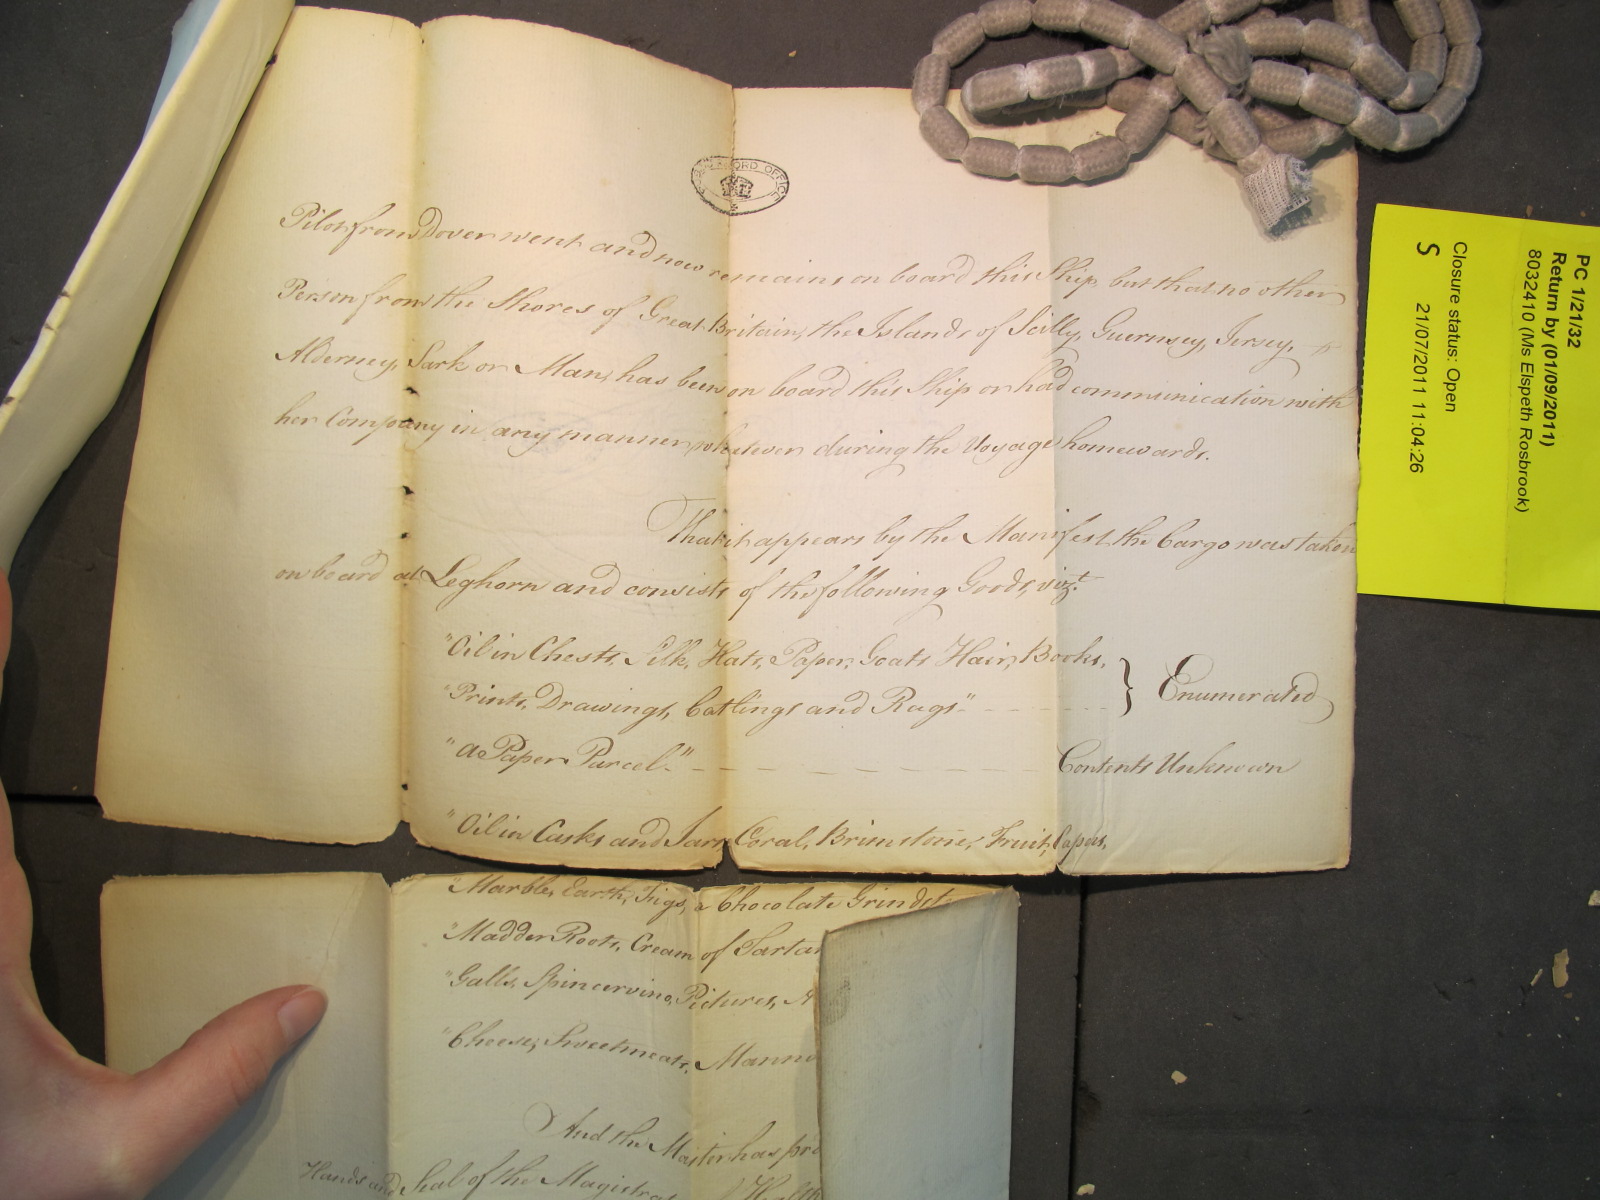 RECORD OFFICE
Pilot from Dover went and now remains on board this Ship, but that no other
Person from the Shores of Great Britain, the Islands of Scilly, Guernsey, Jersey,
Alderney, Sark or Man, has been on board this Ship or had communication with
her Company in any manner whatever during the Voyage homewards.
That it appears by the Manifest the Cargo was taken
on board at Leghorn and consists of the following Goods, vizt.
"Oil in Chests, Silk, Hats, Paper, Goats Hair, Books,
"Prints, Drawings, Catlings and Rags" } Enumerated
"a Paper Parcel." Contents Unknown
"Oil in Casks and Jars, Coral, Brimstone, Fruit, Capers,
"Marble, Earth, Figs, a Chocolate Grindst
"Madder Roots, Cream of Tartar
"Galls, Spincervino, Pictures, A
"Cheese, Sweetmeats, Manna
And the Master has pro
Hands and Seal of the Magistra Health
PC 1/21/32
Return by (01/09/2011)
8032410 (Ms Elspeth Rosbrook)
Closure status: Open
S 21/07/2011 11:04:26